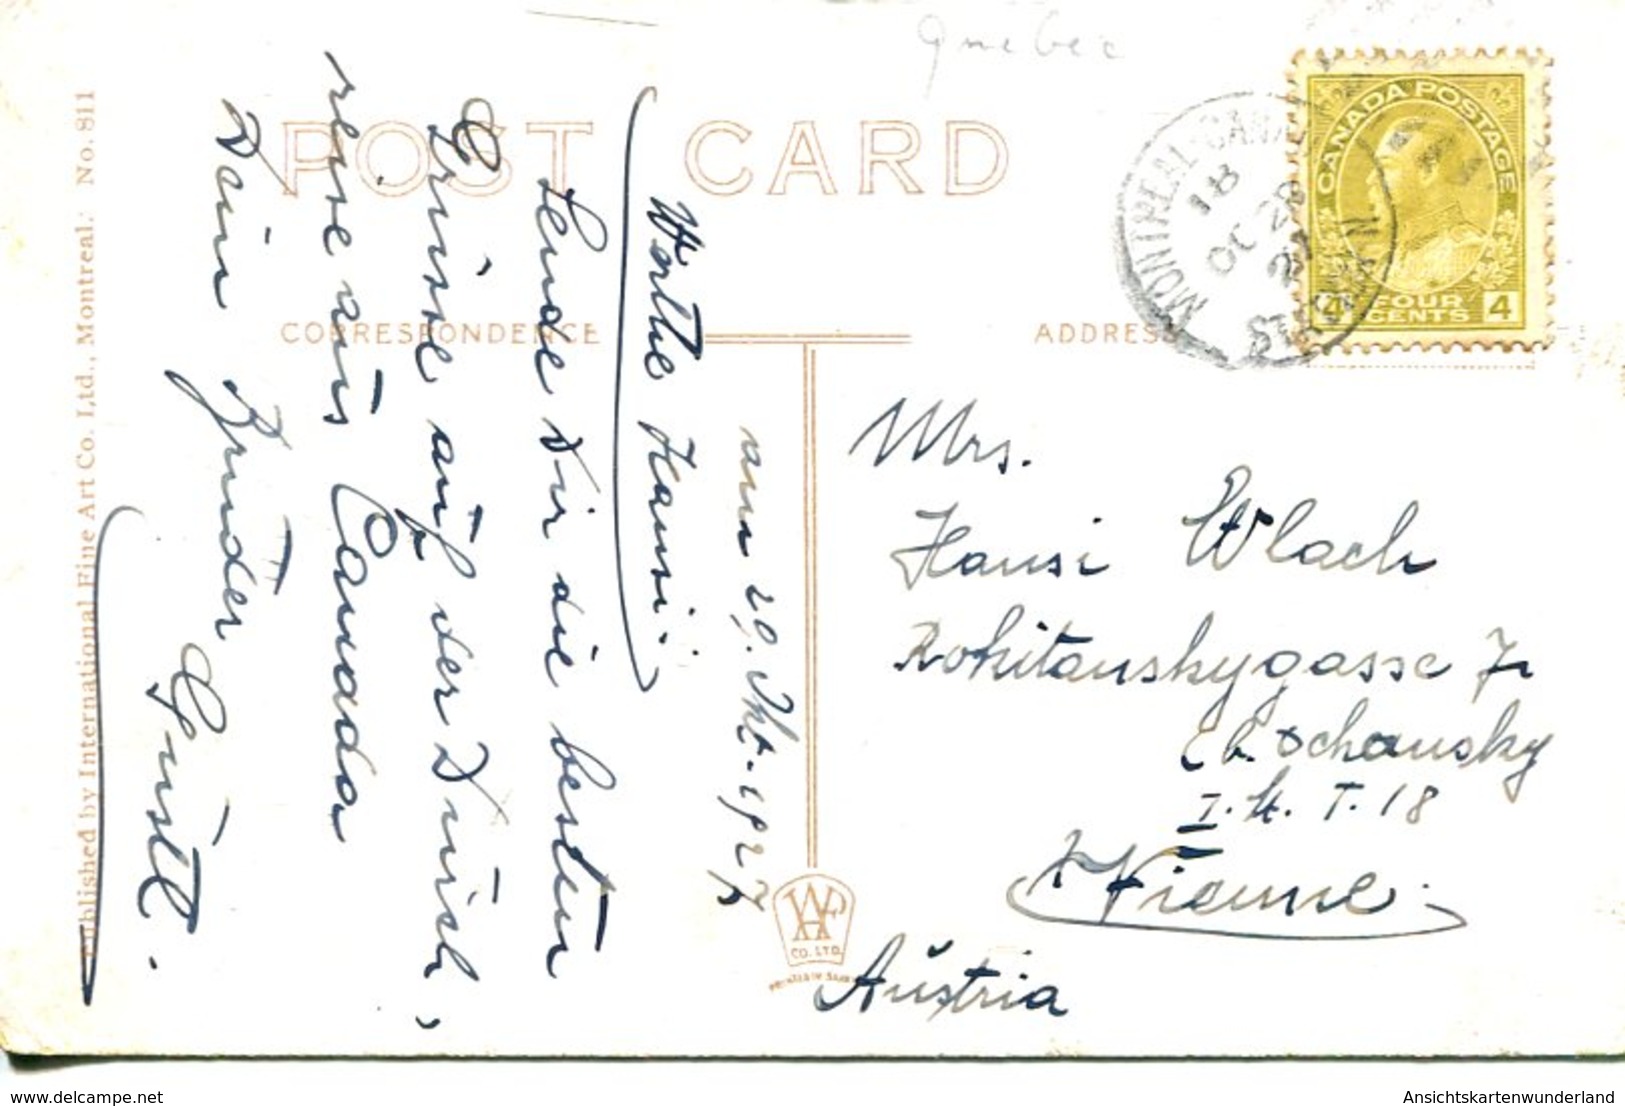 Quebec
POST CARD
CORRESPONDENCE
ADDRESS
Published by International Fine Art Co. Ltd., Montreal. No. 811
CANADA POSTAGE
4 FOUR CENTS 4
MONTREAL CANADA
18
OC 28
27
am 29. Okt. 1927
Werthe Hansi.
Sende Dir die besten
Grüsse auf der Durch,
reise aus Canada
Dein Bruder
Gustl.
Mrs.
Hansi Wlach
Rokitanskygasse
Ochansky
T. 18
Vienne.
Austria
CO. LTD.
PRINTED IN
delcampe.net
AnsichtskartenwunderLand